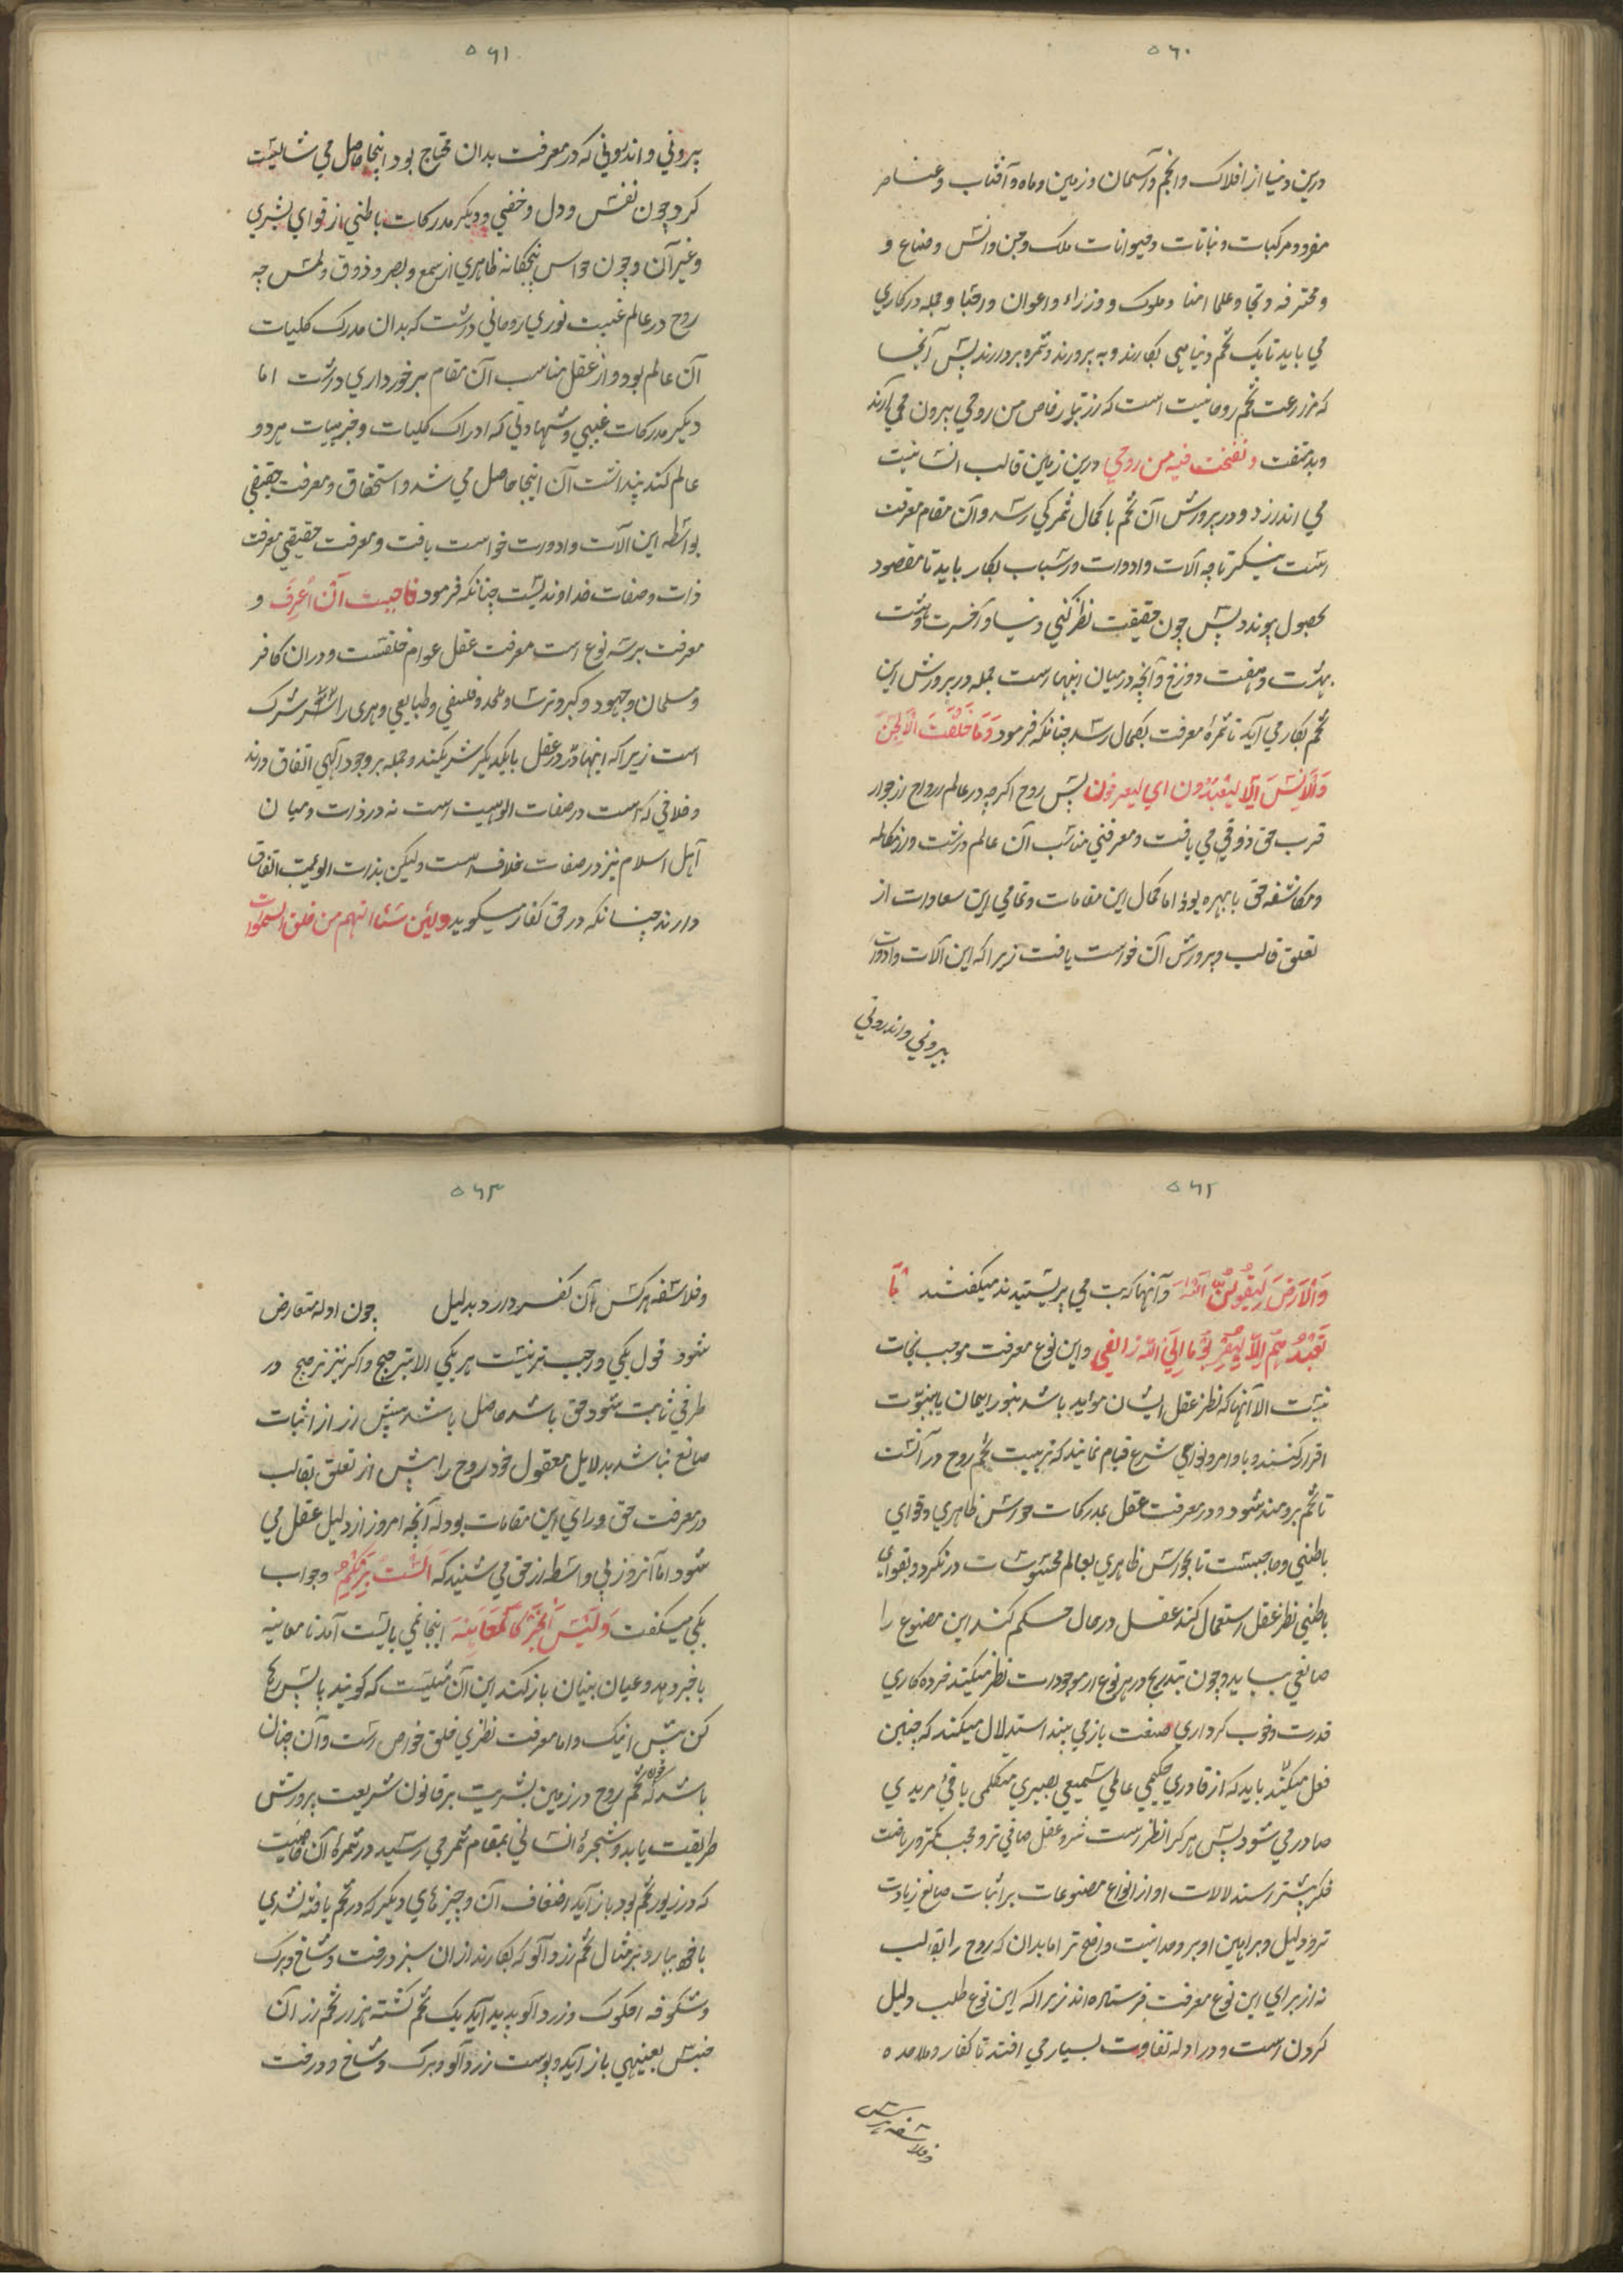 ٥٦٠
درین دنیا از افلاک و انجم و آسمان و زمین و ماه و آفتاب و عناصر
مفرد و مرکبات و نباتات و حیوانات ملک و جن و انس و صناع و
و محترفه و تجا و علما امنا و ملوک و وزراء و اعوان و اجنا و جمله در کاری
می باید تا یک تخم دنیا می بکارند و به پرورند و ثمره بردارند پس آنجا
که مزارعت تخم روحانیت است که از تبار خاص من روحی بیرون می آرند
و بدست و نفخت فیه من روحی درین زمین قالب انسانیت
می اندازد و در پرورش آن تخم با کمال ثمرکی رسد و آن مقام معرفت
است بنیکر تا چه آلات و ادوات و اسباب بکار باید تا مقصود
بحصول پیوندد پس چون حقیقت نظر کنی دنیا و آخرت و هشت
بهشت و هفت دوزخ و آنچه در میان اینهاست جمله در پرورش این
تخم بکار می آید تا ثمرهٔ معرفت بکمال رسد چنانکه فرمود وَمَا خَلَقْتَ الْجِنَّ
وَالْاِنْسَ اِلَّا لِیَعْبُدُون ای لیعرفون پس روح اکرچه در عالم ارواح از جوار
قرب حق ذوقی می یافت و معرفتی مناسب آن عالم داشت و از مکالمه
و مکاشفه حق با بهره بود اما کمال این مقامات و تمامی این سعادات از
تعلق قالب و پرورش آن خواست یافت زیرا که این آلات و ادوات
بیرونی و اندرونی
٥٦١
بیرونی و اندرونی که در معرفت بدان محتاج بود اینجا حاصل می شایست
کرد چون نفس و دل و خفی و دیکر مدرکات باطنی از قوای بشری
و غیر آن و چون حواس پنجکانه ظاهری از سمع و بصر و ذوق و لمس چه
روح در عالم غیبت نوری روحانی داشت که بدان مدرک کلیات
آن عالم بود و از عقل مناسب آن مقام برخورداری داشت اما
دیکر مدرکات غیبی و شهادتی که ادراک کلیات و جزییات هر دو
عالم کند پنداشت آن اینجا حاصل می شد و استحقاق و معرفت حقیقی
بواسطه این آلات و ادوات خواست یافت و معرفت حقیقی معرفت
ذات و صفات خداوندیست چنانکه فرمود فاحببت آن اُعرِفَ و
معرفت بر سه نوع است معرفت عقل عوام خلقست و دران کافر
و مسلمان و جهود و کبر و ترسا و ملحد و فلسفی و طبایعی و دهری را شرکت
است زیرا که اینها در عقل با یکدیکر شریکند و جمله بر وجود الهی اتفاق دارند
و خلافی که است در صفات الوهیت است نه در ذات و میان
اهل اسلام نیز در صفات خلاف است ولیکن بذات الوهیت اتفاق
دارند چنانکه در حق کفار میکوید ولئن سئا انهم من خلق السموات
٥٦٢
وَالْاَرَضَ لَیَقُولُنَّ الله و آنهاکه بت می پرستیدند میکفتند مَا
نَعْبُدُ هُم اِلّا لِیُقَرِّبُوْنَا اِلَی الله زلفی و این نوع معرفت موجب نجات
نیست الا آنهاکه نظر عقل ایشان مؤید باشد بنور ایمان یا بنبوّت
اقرار کنند و باوامر و نواهی شرع قیام نمایند که تربیت تخم روح در آنست
تا تخم برومند شود و در معرفت عقل بمدرکات حواس ظاهری و قوای
باطنی و حاجبست تا بحواس ظاهری بعالم محسوسات درنکرد و بقوای
باطنی نظر عقل استعمال کند عقل در حال حکم کند این مصنوع را
صانعی بباید و چون بتدریج در هر نوع از موجودات نظر میکند خرده کاری
قدرت و خوب کرداری صنعت باز می بیند استدلال میکند که چنین
فعل میکند باید که از قادری حکیمی عالمی سمیعی بصیری متکلمی باقی مریدی
صادر می شود پس هرکرا نظر راست شد و عقل صافی تر و محب کمتر و ریاضت
فکر بیشتر استدلالات او از انواع مصنوعات بر اثبات صانع زیادت
تر و دلیل و براهین او بر وحدانیت واضح تر اما بدان که روح را بقالب
نه از برای این نوع معرفت فرستاده اند زیرا که این نوع طلب دلیل
کردن است و در ادله تفاوت بسیار می افتد تا کفار و ملاحده
و فلاسفه هرکس
٥٦٣
و فلاسفه هرکس بآن کفر دارد بدلیل چون ادله متعارض
شود قول یکی واجب تر نیست هر یکی الا بترجیح و اکر نیز ترجیح در
طرفی ثابت شود حق باشد حاصل باشد بیش از از اثبات
صانع نباشد بدلایل معقول خود روح را پیش از تعلق بقالب
در معرفت حق ورای این مقامات بود له آنچه امروز از دلیل عقل می
شنود اما آنروز بی واسطه از حق می شنید که اَلَسْتُ بِرَبِّکُمْ و جواب
بلی میکفت وَلَیْسَ الْخَبَرُ کَالْمُعَایَنَه اینجا نمی بایست آمد تا معاینه
با خبر دهد و عیان بنیان باز کند این آن مثلیست که کویند پا پس رها
کن پیش اینک واما معرفت نظری خلق خواص است و آن چنان
باشد که چون تخم روح در زمین بشریت بر قانون شریعت پرورش
طریقت یابد و شجرهٔ انسانی بمقام ثمر می رسید در ثمرهٔ آن خاصیت
که در زیور تخم بود باز آید اضعاف آن و چیزهای دیکر که در تخم یافته نشدی
با خود بیارد بر مثال تخم زرد آلو که بکارند ازان سبز درخت و شاخ و برک
و شکوفه اخکوک و زرد آلو پدید آید یک تخم کشته هزار تخم از آن
جنس بعینهی باز آید و پوست زرد آلو و برک و شاخ و درخت